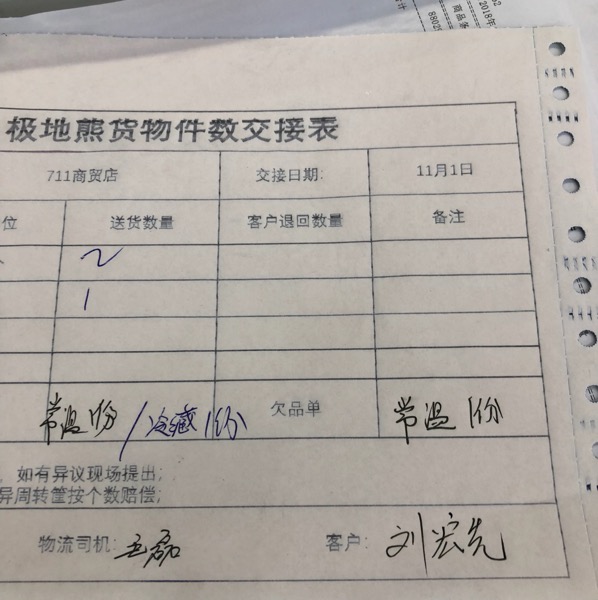 极地熊货物件数交接表
711商贸店 交接日期: 11月1日
位 送货数量 客户退回数量 备注
2
1
常温1份/冷藏1份 欠品单 常温1份
如有异议现场提出;
异周转筐按个数赔偿;
物流司机: 王磊 客户: 刘宏先